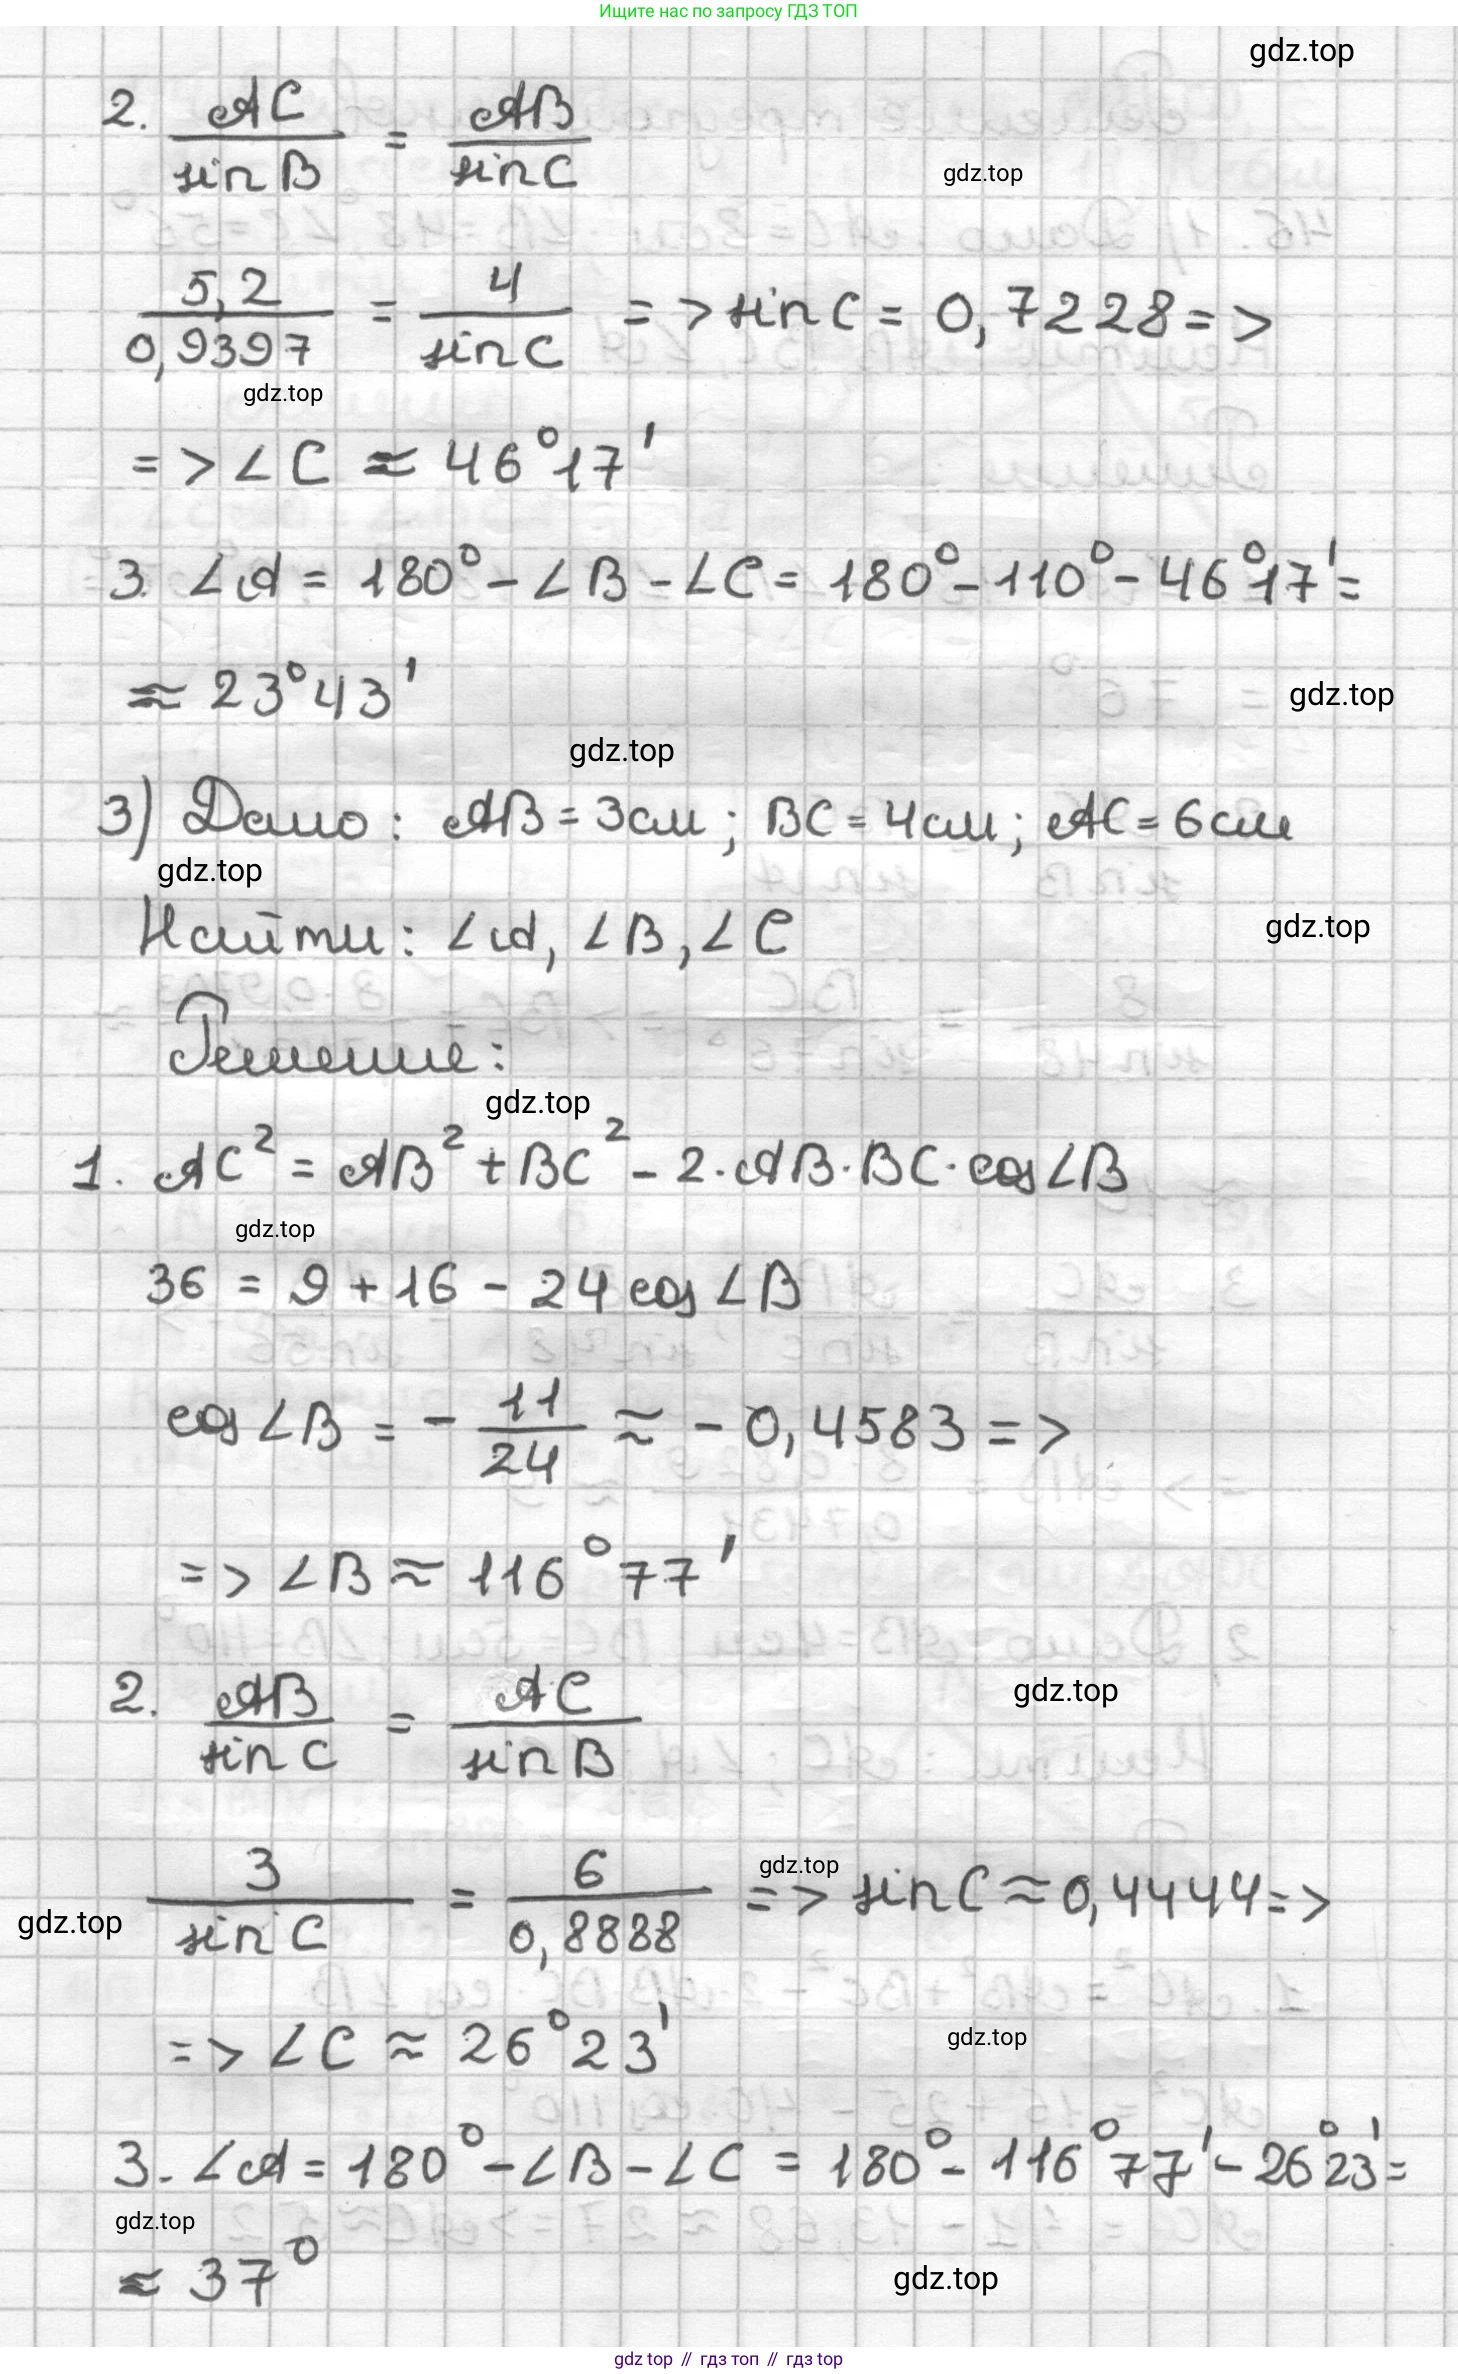 Ищите нас по запросу ГДЗ ТОП
gdz.top
2. AC / sin B = AB / sin C
gdz.top
5,2 / 0,9397 = 4 / sin C => sin C = 0,7228 =>
gdz.top
=> ∠C ≈ 46°17'
3. ∠A = 180° - ∠B - ∠C = 180° - 110° - 46°17' =
≈ 23°43'
gdz.top
gdz.top
3) Дано: AB = 3см; BC = 4см; AC = 6см
gdz.top
Найти: ∠A, ∠B, ∠C
gdz.top
Решение:
gdz.top
1. AC² = AB² + BC² - 2·AB·BC·cos∠B
gdz.top
36 = 9 + 16 - 24 cos∠B
cos∠B = - 11 / 24 ≈ - 0,4583 =>
=> ∠B ≈ 116°77'
2. AB / sin C = AC / sin B
gdz.top
3 / sin C = 6 / 0,8888 => sin C ≈ 0,4444 =>
gdz.top
gdz.top
=> ∠C ≈ 26°23'
gdz.top
3. ∠A = 180° - ∠B - ∠C = 180° - 116°77' - 26°23' =
gdz.top
≈ 37°
gdz.top
gdz top // гдз топ // гдз top